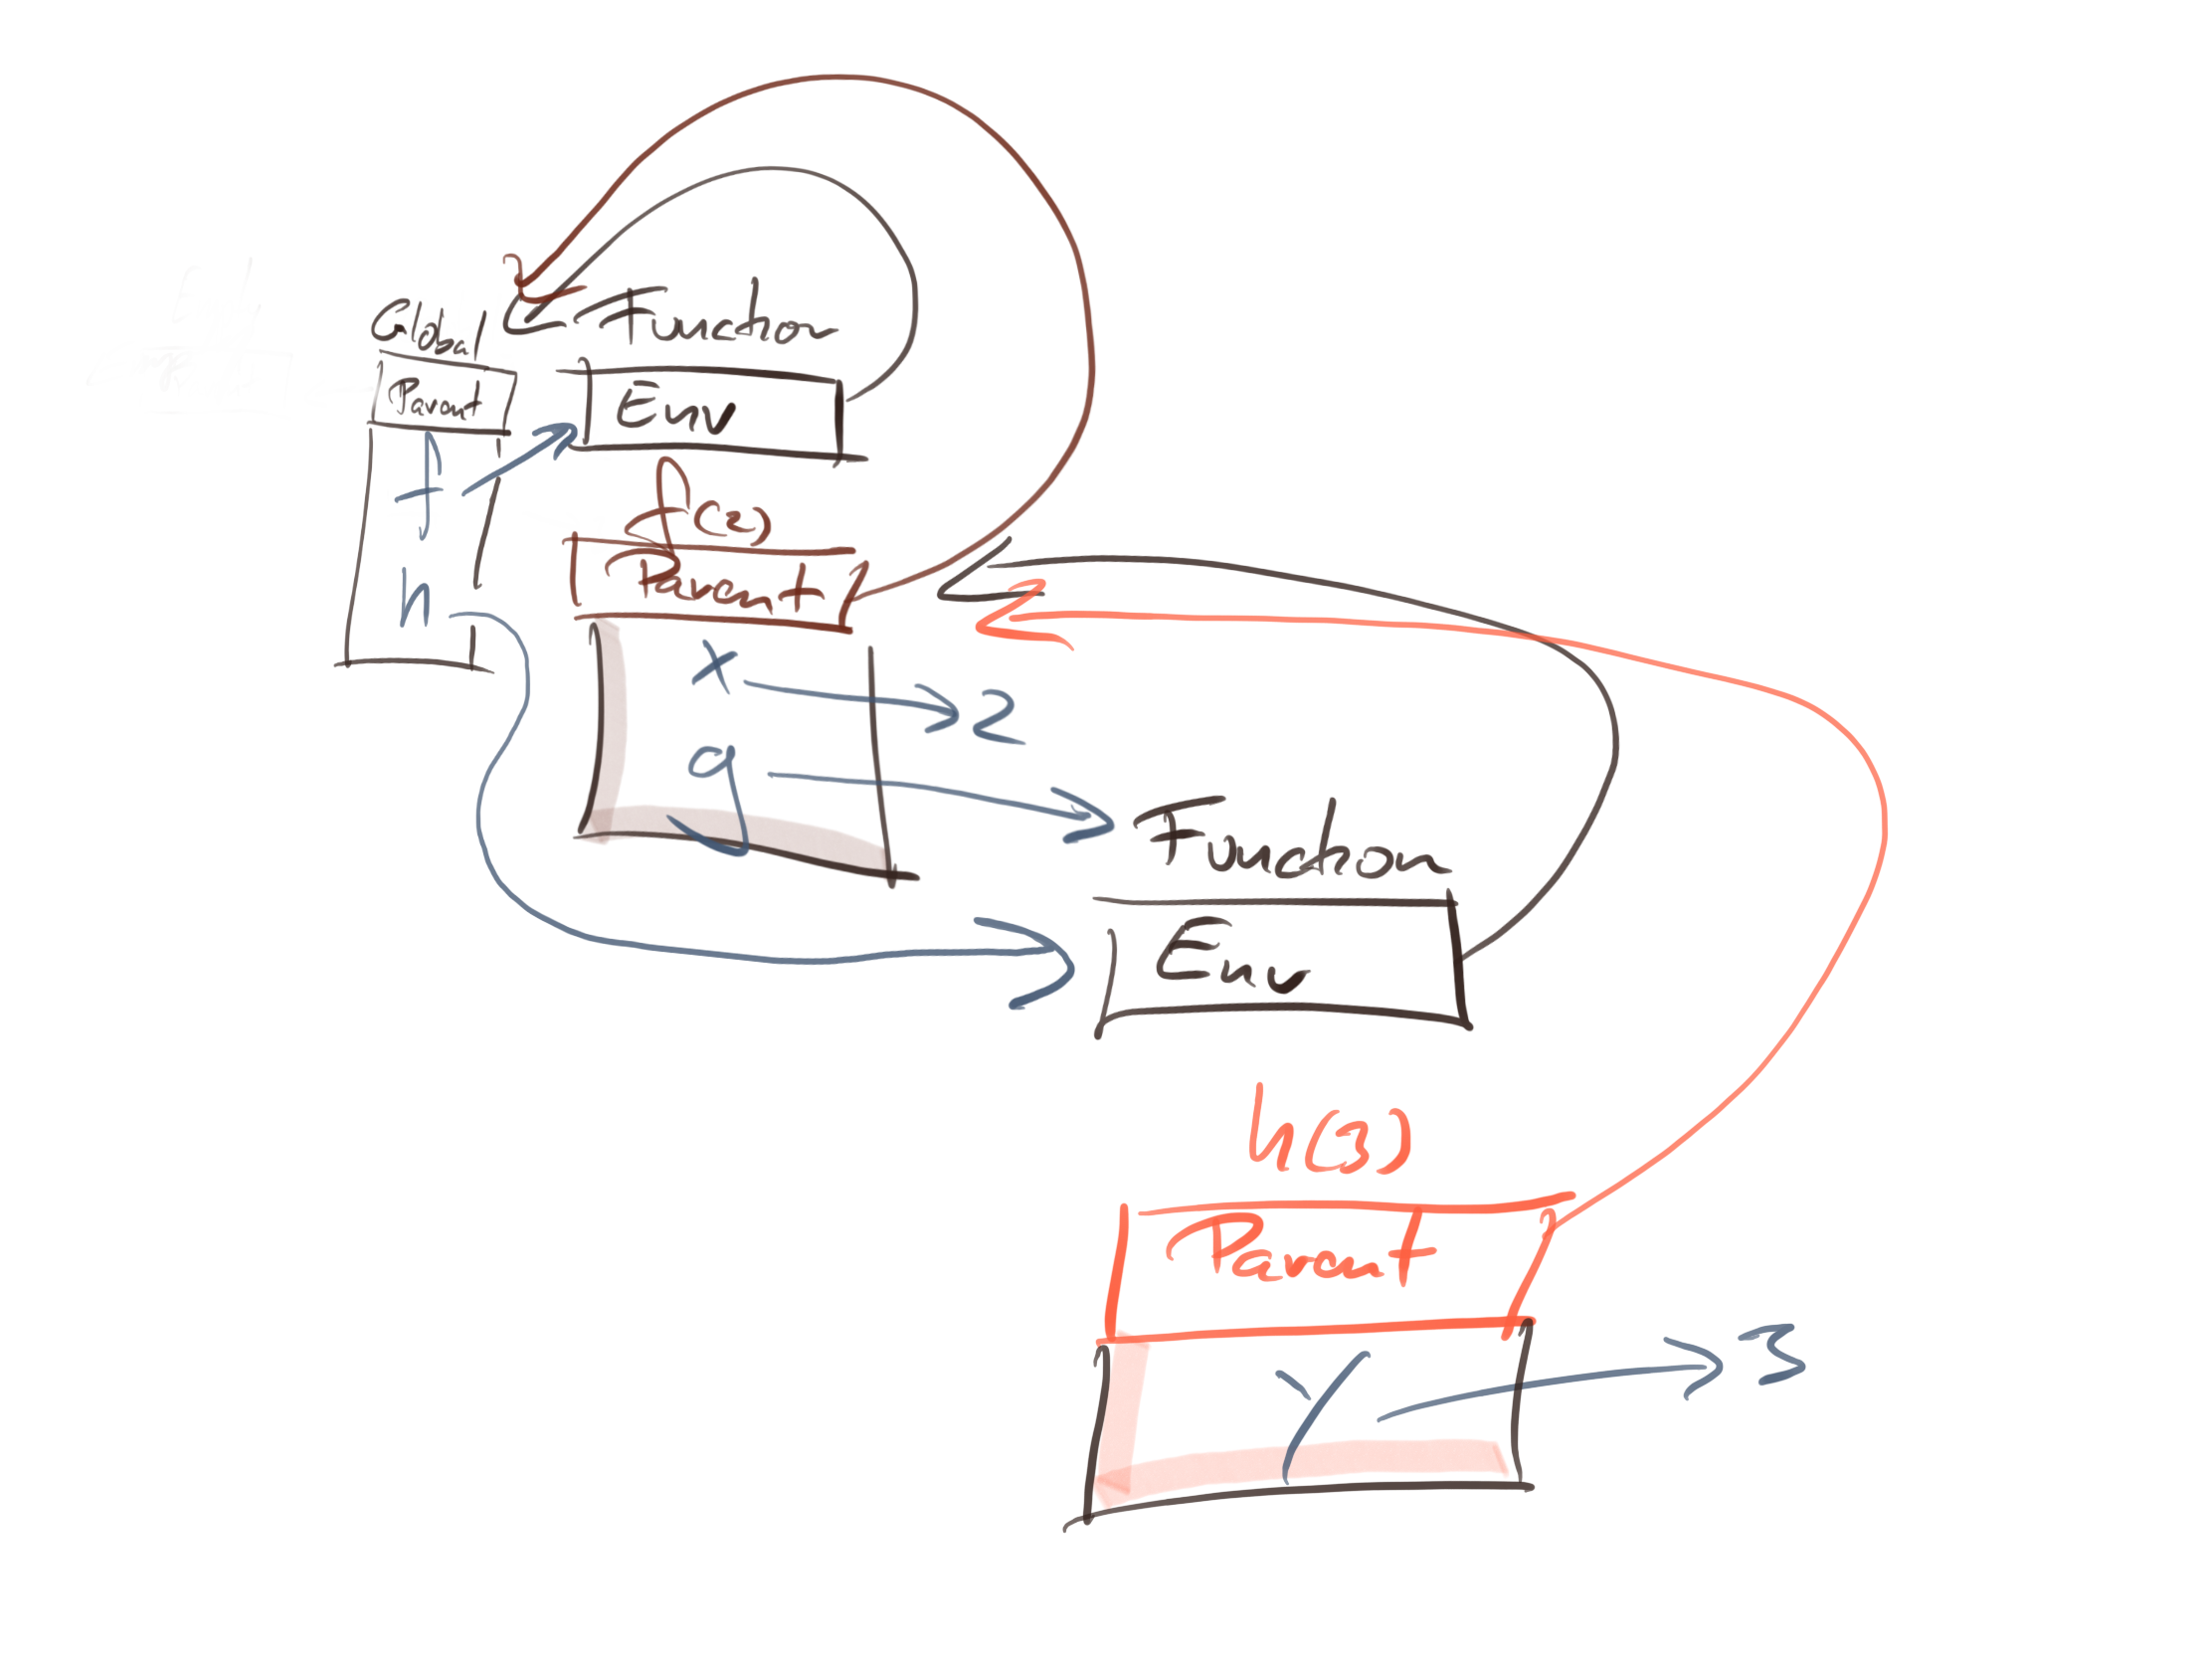 Global
Parent
f
h
Function
Env
f(2)
Parent
x 2
g
Function
Env
h(3)
Parent
y 3